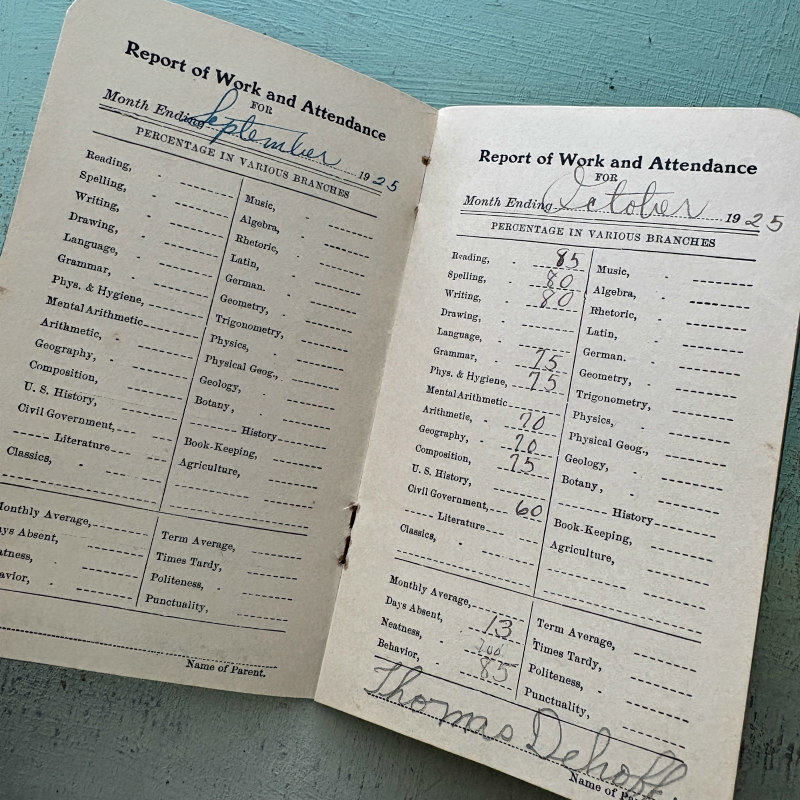 Report of Work and Attendance
FOR
Month Ending September 1925
PERCENTAGE IN VARIOUS BRANCHES
Reading,
Spelling,
Writing,
Drawing,
Language,
Grammar,
Phys. & Hygiene,
Mental Arithmetic
Arithmetic,
Geography,
Composition,
U. S. History,
Civil Government,
Literature
Classics,
Music,
Algebra,
Rhetoric,
Latin,
German.
Geometry,
Trigonometry,
Physics,
Physical Geog.,
Geology,
Botany,
History
Book-Keeping,
Agriculture,
Monthly Average,
ys Absent,
atness,
avior,
Term Average,
Times Tardy,
Politeness,
Punctuality,
Name of Parent.
Report of Work and Attendance
FOR
Month Ending October 1925
PERCENTAGE IN VARIOUS BRANCHES
Reading, 85
Spelling, 80
Writing, 80
Drawing,
Language,
Grammar, 75
Phys. & Hygiene, 75
Mental Arithmetic
Arithmetic, 70
Geography, 70
Composition, 75
U. S. History,
Civil Government, 60
Literature
Classics,
Music,
Algebra,
Rhetoric,
Latin,
German.
Geometry,
Trigonometry,
Physics,
Physical Geog.,
Geology,
Botany,
History
Book-Keeping,
Agriculture,
Monthly Average,
Days Absent, 13
Neatness, 100
Behavior, 85
Term Average,
Times Tardy,
Politeness,
Punctuality,
Thomas Dehoff
Name of Par